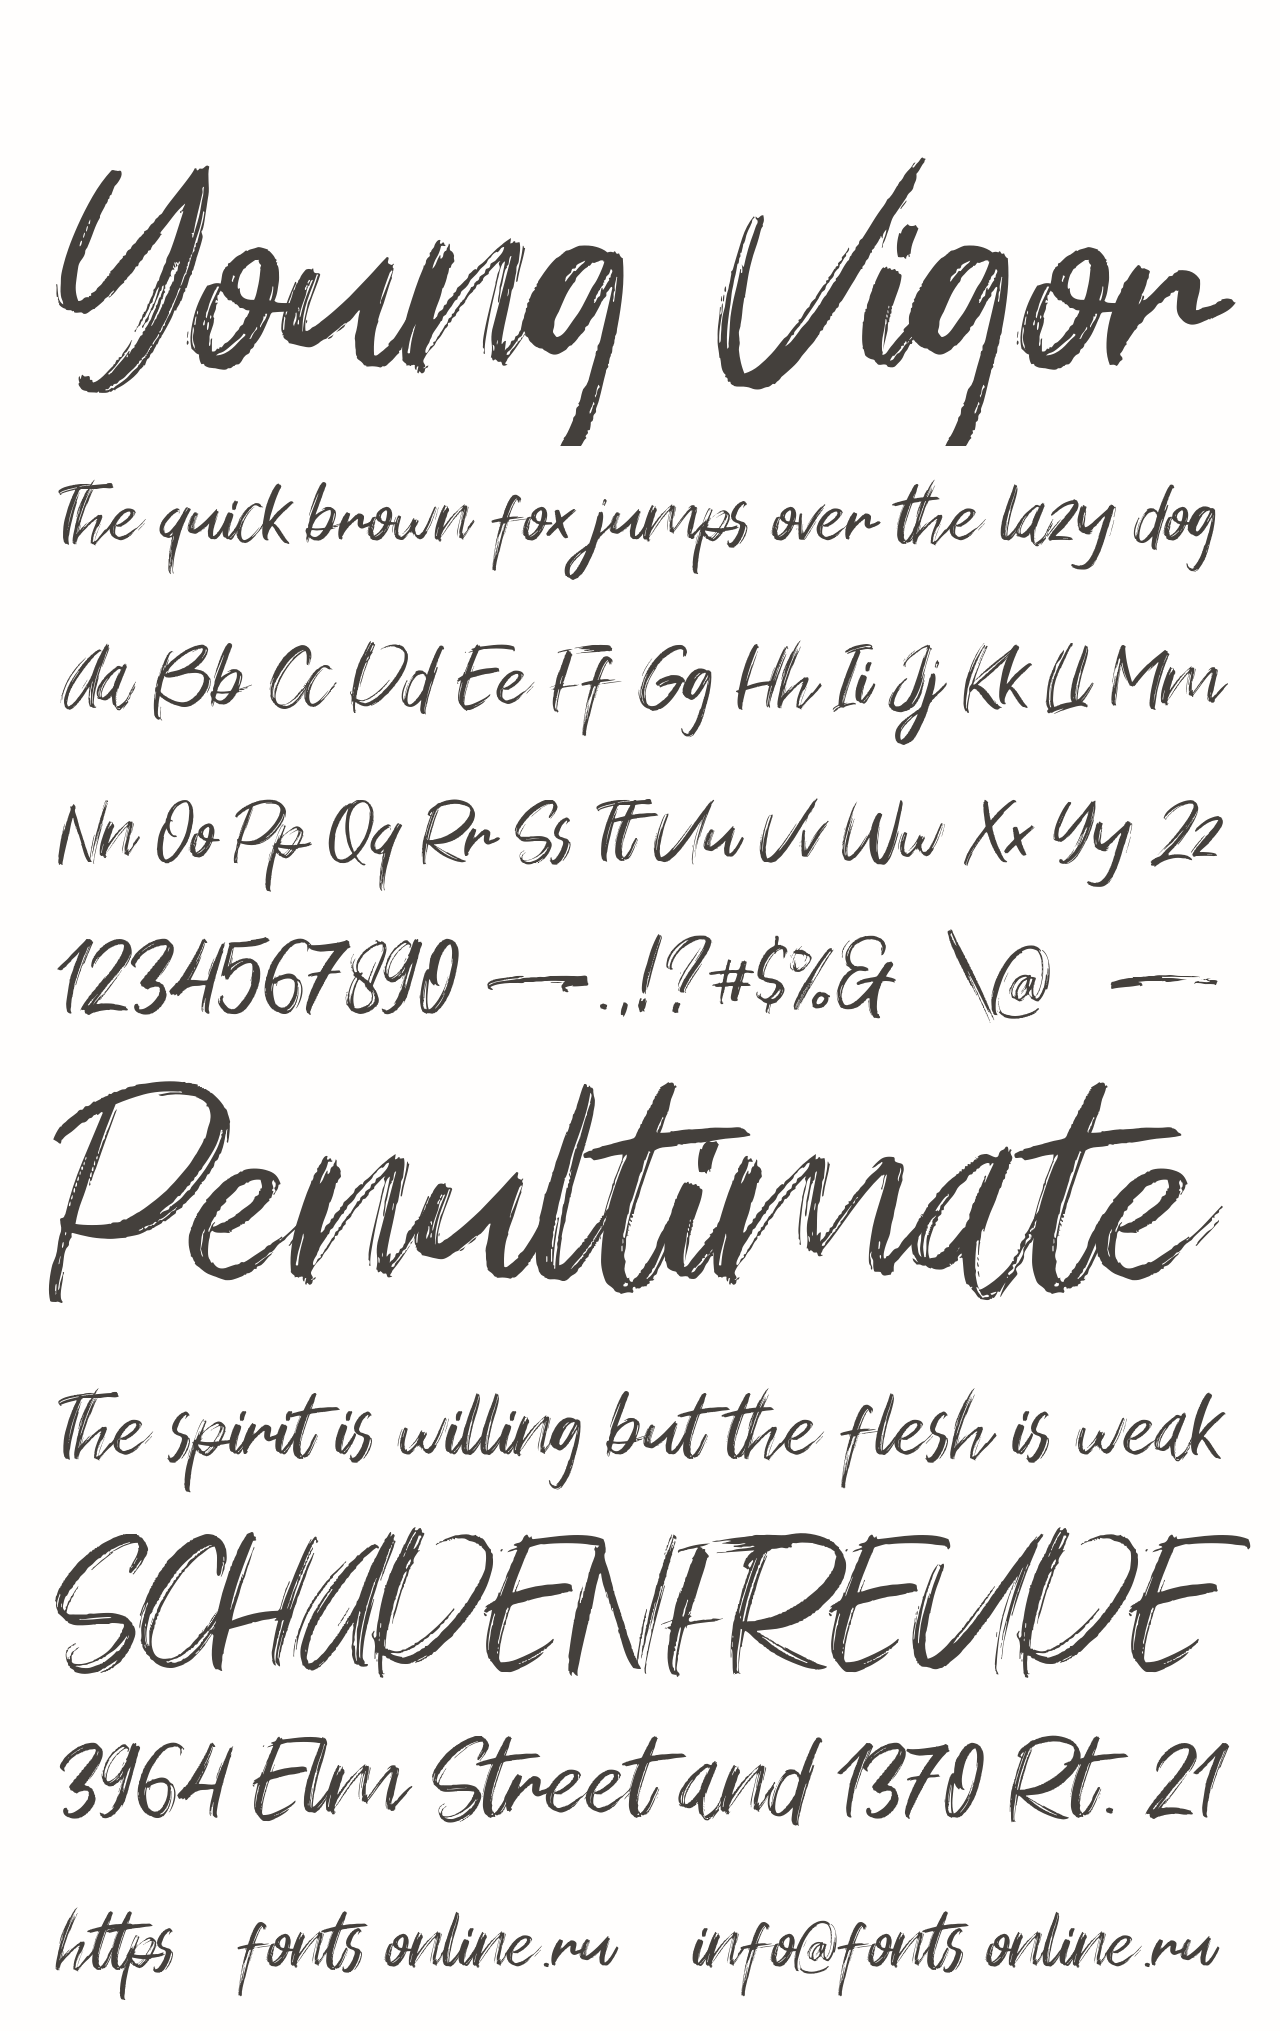 Young Vigor
The quick brown fox jumps over the lazy dog
Aa Bb Cc Dd Ee Ff Gg Hh Ii Jj Kk Ll Mm
Nn Oo Pp Qq Rr Ss Tt Uu Vv Ww Xx Yy Zz
1234567890 —.,!?#$%& \@ —
Penultimate
The spirit is willing but the flesh is weak
SCHADENFREUDE
3964 Elm Street and 1370 Rt. 21
https fonts online.ru info@fonts online.ru